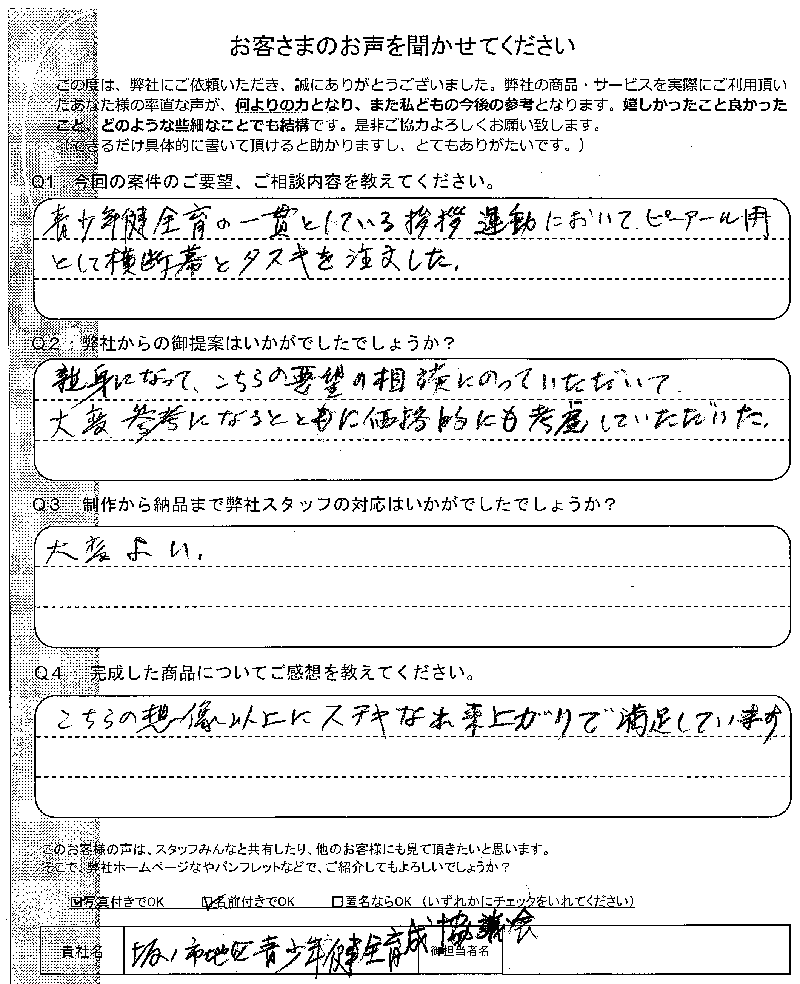 お客さまのお声を聞かせてください
この度は、弊社にご依頼いただき、誠にありがとうございました。弊社の商品・サービスを実際にご利用頂い
たあなた様の率直な声が、何よりの力となり、また私どもの今後の参考となります。嬉しかったこと良かった
こと、どのような些細なことでも結構です。是非ご協力よろしくお願い致します。
(できるだけ具体的に書いて頂けると助かりますし、とてもありがたいです。)
Q1 今回の案件のご要望、ご相談内容を教えてください。
青少年健全育の一貫としている挨拶運動において、ピーアール用
として横断幕とタスキを注文した。
Q2 弊社からの御提案はいかがでしたでしょうか？
親身になって、こちらの要望の相談にのっていただいて
大変参考になるとともに価格的にも考慮していただいた。
Q3 制作から納品まで弊社スタッフの対応はいかがでしたでしょうか？
大変よい。
Q4 完成した商品についてご感想を教えてください。
こちらの想像以上にステキな出来上がりで満足しています
このお客様の声は、スタッフみんなと共有したり、他のお客様にも見て頂きたいと思います。
そこで、弊社ホームページなやパンフレットなどで、ご紹介してもよろしいでしょうか？
☑写真付きでOK ☑名前付きでOK □匿名ならOK (いずれかにチェックをいれてください)
貴社名 市地区青少年健全育成協議会 御担当者名